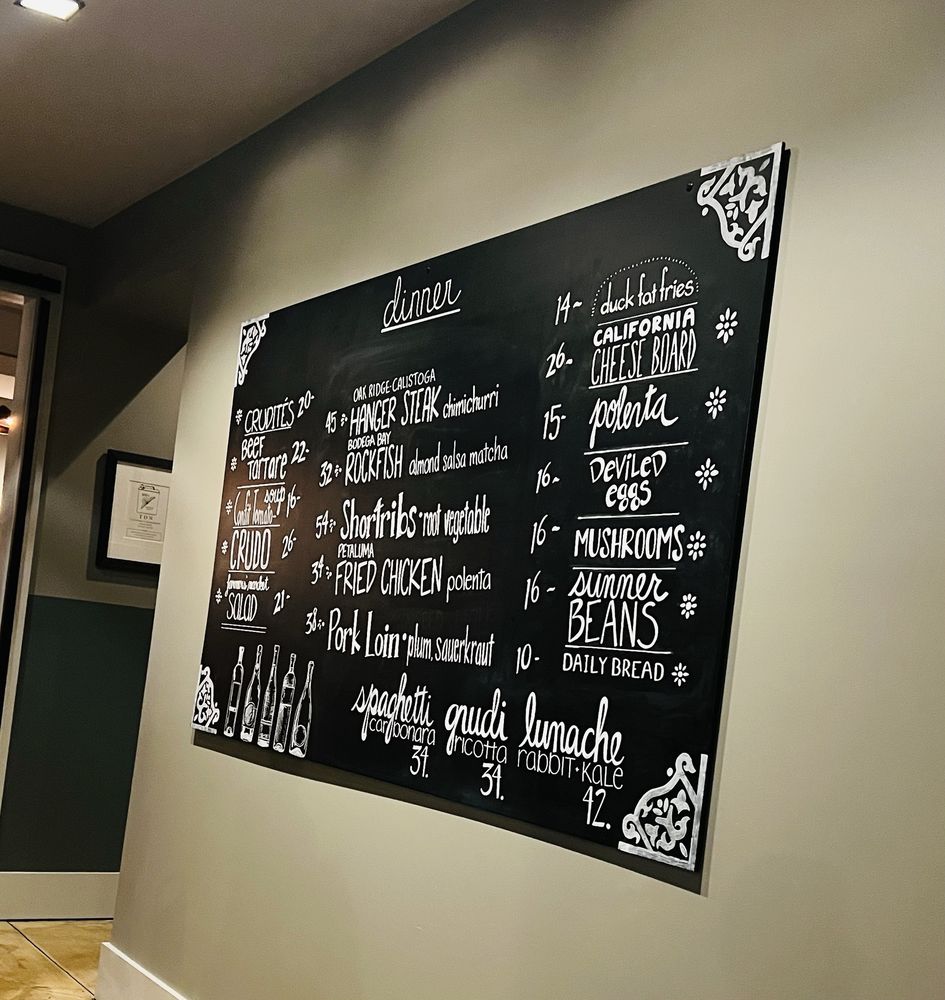 dinner
CRUDITÉS 20-
BEEF
TARTARE 22-
soup
Confit Tomato 16-
CRUDO 26-
farmers market
SALAD 21-
OAK RIDGE-CALISTOGA
45 HANGER STEAK chimichurri
BODEGA BAY
32 ROCKFISH almond salsa matcha
54 Shortribs · root vegetable
PETALUMA
34 FRIED CHICKEN polenta
38 Pork Loin · plum, sauerkraut
14- duck fat fries
CALIFORNIA
26- CHEESE BOARD
15- polenta
16- DEVILED
eggs
16- MUSHROOMS
16- summer
BEANS
10- DAILY BREAD
spaghetti
carbonara
34.
gnudi
ricotta
34.
lumache
rabbit · kale
42.